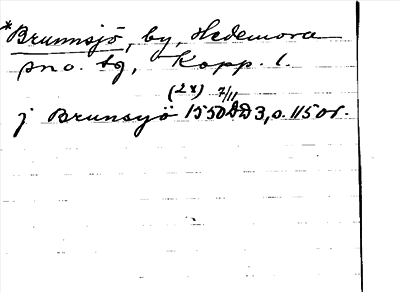 *Brunnsjö, by, Hedemora
sn o. tg, Kopp. l.
(2x) 7/11
j Brunsyö 1550 DD 3, o. 115 or.